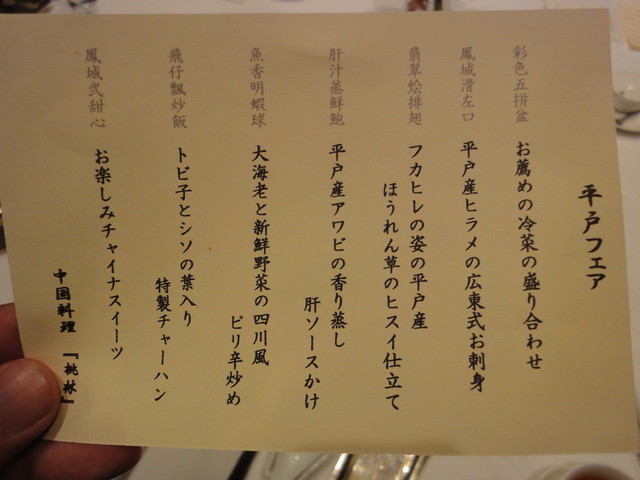 平戸フェア
彩色五拼盆 お薦めの冷菜の盛り合わせ
鳳城滑左口 平戸産ヒラメの広東式お刺身
翡翠烩排翅 フカヒレの姿の平戸産
ほうれん草のヒスイ仕立て
肝汁蒸鮮鮑 平戸産アワビの香り蒸し
肝ソースかけ
魚香明蝦球 大海老と新鮮野菜の四川風
ピリ辛炒め
飛仔飄炒飯 トビ子とシソの葉入り
特製チャーハン
鳳城弐甜心 お楽しみチャイナスイーツ
中国料理 『桃林』